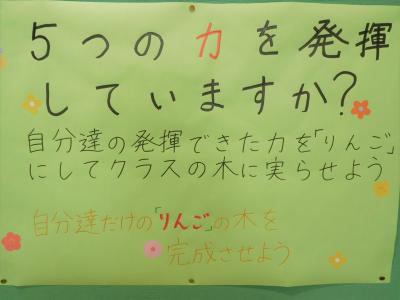 ５つの力を発揮
していますか？
自分達の発揮できた力を「りんご」
にしてクラスの木に実らせよう
自分達だけの「りんご」の木を
完成させよう